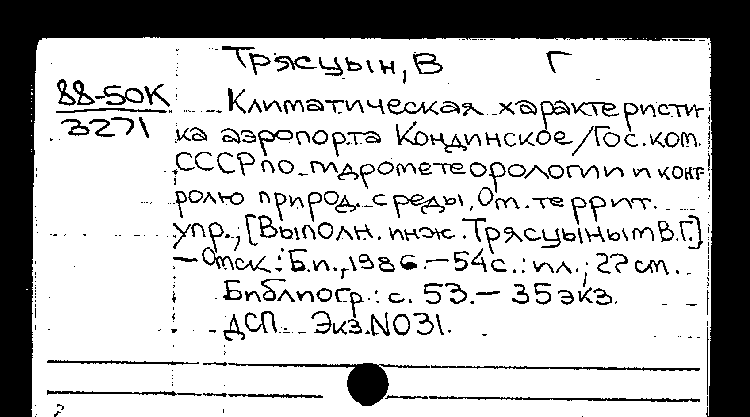 Трясцын, В Г
88-50К
3271
Климатическая характеристи-
ка аэропорта Кондинское/Гос. ком.
СССР по гидрометеорологии и конт-
ролю природ. среды, Ом. террит.
упр., [Выполн. инж. Трясцыным В.Г.]
— Омск: Б.и., 1986. — 54 с.: ил.; 27 см.
Библиогр.: с. 53. — 35 экз.
ДСП Экз. N031.